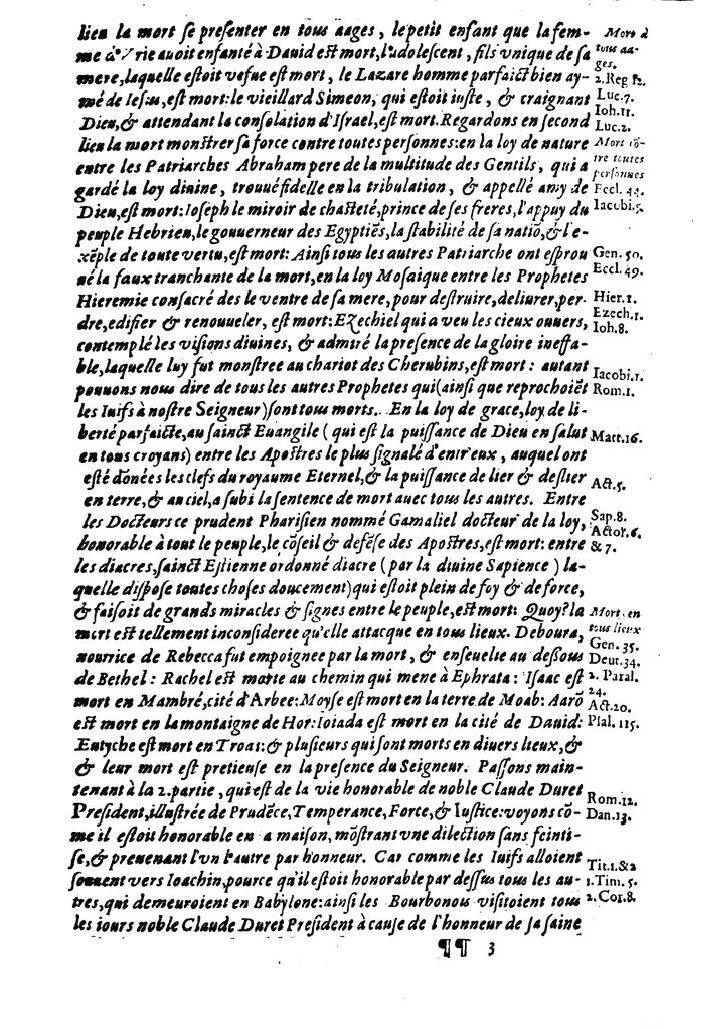 lieu la mort se presenter en tous aages, le petit enfant que la fem-
me d'Vrie auoit enfanté à Dauid est mort, l'adolescent, fils vnique de sa
mere, laquelle estoit vefue est mort, le Lazare homme parfaict bien ay-
mé de Iesus, est mort: le vieillard Simeon, qui estoit iuste, & craignant
Dieu, & attendant la consolation d'Israel, est mort. Regardons en second
lieu la mort monstrer sa force contre toutes personnes: en la loy de nature
entre les Patriarches Abraham pere de la multitude des Gentils, qui a
gardé la loy diuine, trouué fidelle en la tribulation, & appellé amy de
Dieu, est mort: Ioseph le miroir de chasteté, prince de ses freres, l'appuy du
peuple Hebrieu, le gouuerneur des Egyptiẽs, la stabilité de sa natiõ, & l'e-
xẽple de toute vertu, est mort: Ainsi tous les autres Patriarche ont esprou
ué la faux tranchante de la mort, en la loy Mosaique entre les Prophetes
Hieremie consacré des le ventre de sa mere, pour destruire, deliurer, per-
dre, edifier & renouueler, est mort: Ezechiel qui a veu les cieux ouuers,
contemplé les visions diuines, & admiré la presence de la gloire ineffa-
ble, laquelle luy fut monstree au chariot des Cherubins, est mort: autant
pouuons nous dire de tous les autres Prophetes qui (ainsi que reprochoiẽt
les Iuifs à nostre Seigneur) sont tous morts. En la loy de grace, loy de li-
berté parfaicte, au sainct Euangile (qui est la puissance de Dieu en salut
en tous croyans) entre les Apostres le plus signalé d'entr'eux, auquel ont
esté dõnées les clefs du royaume Eternel, & la puissance de lier & deslier
en terre, & au ciel, a subi la sentence de mort auec tous les autres. Entre
les Docteurs ce prudent Pharisien nommé Gamaliel docteur de la loy,
honorable à tout le peuple, le cõseil & defẽse des Apostres, est mort: entre
les diacres, sainct Estienne ordonné diacre (par la diuine Sapience) la-
quelle dispose toutes choses doucement) qui estoit plein de foy & de force,
& faisoit de grands miracles & signes entre le peuple, est mort: Quoy? la
mort est tellement inconsideree qu'elle attacque en tous lieux. Deboura,
nourrice de Rebecca fut empoignee par la mort, & enseuelie au dessous
de Bethel: Rachel est morte au chemin qui mene à Ephrata: Isaac est
mort en Mambré, cité d'Arbee: Moyse est mort en la terre de Moab: Aarõ
est mort en la montaigne de Hor: Ioiada est mort en la cité de Dauid:
Eutyche est mort en Troas: & plusieurs qui sont morts en diuers lieux, &
& leur mort est pretieuse en la presence du Seigneur. Passons main-
tenant à la 2. partie, qui est de la vie honorable de noble Claude Duret
President, illustrée de Prudẽce, Temperance, Force, & Iustice: voyons cõ-
me il estoit honorable en a maison, mõstrant vne dilection sans feinti-
se, & preuenant l'vn l'autre par honneur. Car comme les Iuifs alloient
souuent vers Ioachin, pource qu'il estoit honorable par dessus tous les au-
tres, qui demeuroient en Babylone: ainsi les Bourbonois visitoient tous
les iours noble Claude Duret President à cause de l'honneur de sa saine
¶¶ 3
Mort à
tous aa-
ges.
2. Reg 12.
Luc. 7.
Ioh. 11.
Luc. 2.
Mort cõ-
tre toutes
personnes
Eccl. 44.
Iacobi. 5.
Gen. 50.
Eccl. 49.
Hier. 1.
Ezech. 1.
Ioh. 8.
Iacobi. 1.
Rom. 1.
Matt. 16.
Act. 5.
Sap. 8.
Actor. 6.
& 7.
Mort en
tous lieux
Gen. 35.
Deut. 34.
2. Paral.
24.
Act. 20.
Psal. 115.
Rom. 12.
Dan. 13.
Tit. 1. & 2
1. Tim. 5.
2. Cor. 8.